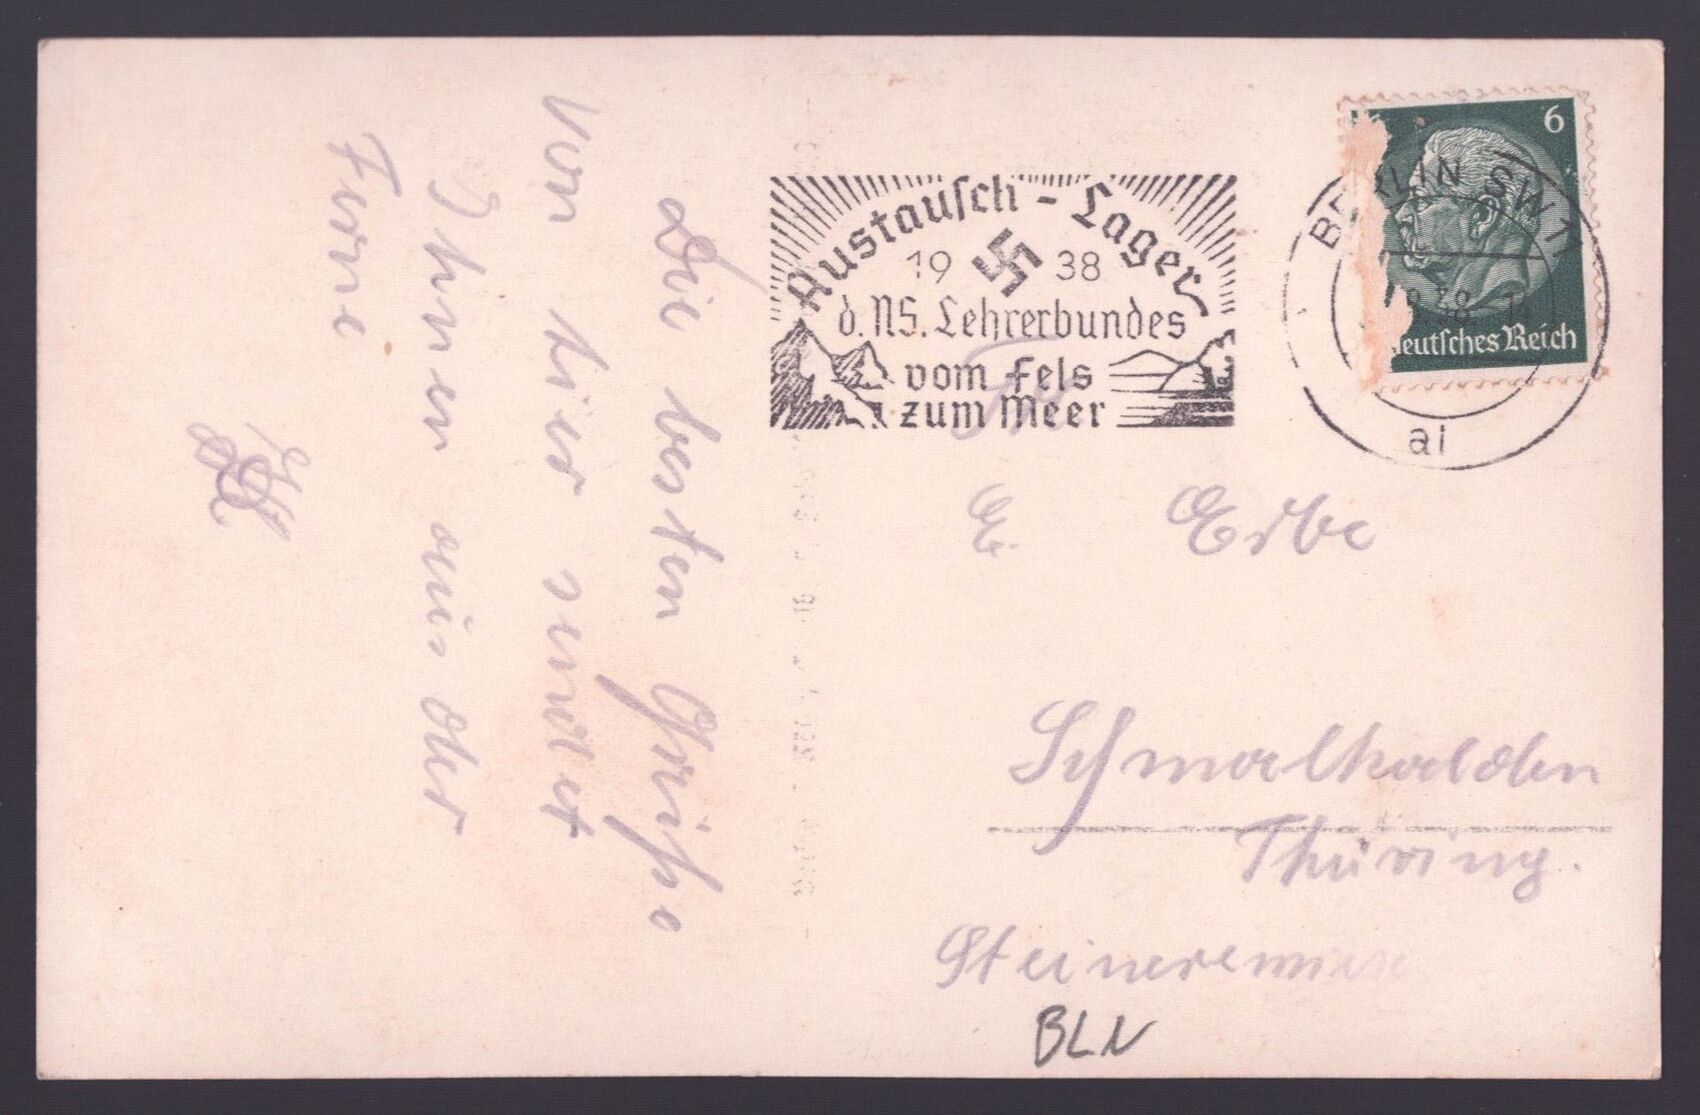 Die besten Grüße
von hier sendet
Ihnen aus der
Ferne
Austausch-Lager
19 38
d. NS. Lehrerbundes
vom Fels
zum Meer
6
BERLIN SW 11
Deutsches Reich
ai
E. Erbe
Schmalkalden
Thüring.
BLN